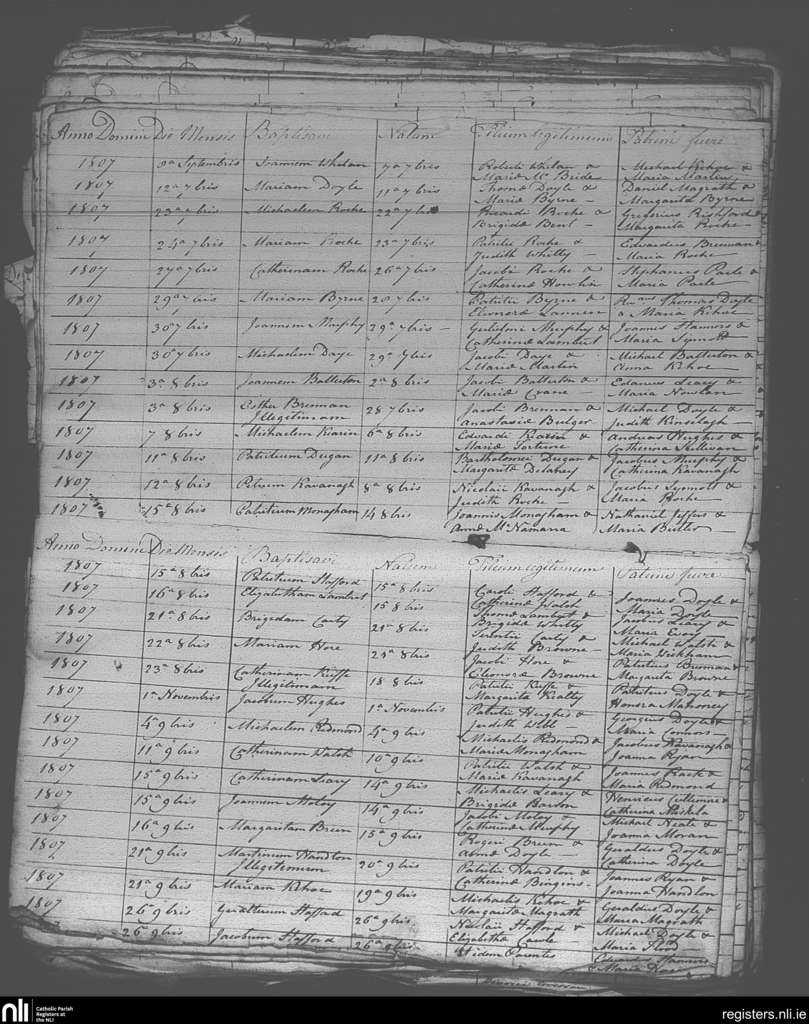 Anno Domini Die Mensis Baptisavi Natum Filium legitimum Patrini fuere
1807 8a Septembris Joannem Whelan 7a 7bris Patritii Whelan & Michael Kehoe &
Maria Mc Bride Maria Martin
1807 12a 7bris Mariam Doyle 11a 7bris Thomæ Doyle & Daniel Magrath &
Maria Byrne Margarita Byrne
1807 23a 7bris Michaelem Roche 22a 7bris Ricardi Roche & Gregorius Rishford &
Brigidæ Bent Margarita Roche
1807 24a 7bris Mariam Roche 23a 7bris Patritii Roche & Edwardus Brennan &
Judith Whitty Maria Roche
1807 27a 7bris Catherinam Roche 26a 7bris Jacobi Roche & Stephanus Pasle &
Catherinæ Howlin Maria Pasle
1807 29a 7bris Mariam Byrne 20 7bris Patritii Byrne & Rdus Thomas Doyle
Eleonora & Maria Kehoe
1807 30a 7bris Joannem Murphy 29a 7bris Gulielmi Murphy & Joannes &
Catherinæ Lambert Maria Synnott
1807 30a 7bris Michaelem Daye 29a 7bris Jacobi Daye & Michael Batterton &
Mariæ Martin Anna Kehoe
1807 3a 8bris Joannem Batterton 2a 8bris Jacobi Batterton & Edwardus Leary &
Mariæ Crane Maria Nowlan
1807 3a 8bris Esther Brennan 28 7bris Jacobi Brennan & Michael Doyle &
Illegitimam Anastasiæ Bulger Judith Kinselagh
1807 7 8bris Michaelem Kiarin 6a 8bris Edwardi Kiarin & Andreas Hughes &
Mariæ Catherina Sullivan
1807 11a 8bris Patritium Dugan 11a 8bris Bartholomei Dugan & Jacobus Murphy &
Margarita Delahey Catherina Kavanagh
1807 12a 8bris Petrum Kavanagh 8a 8bris Nicolaii Kavanagh & Jacobus Synnott &
Judith Roche Maria Roche
1807 15a 8bris Patritium Monagham 14 8bris Joannis Monagham & Nathaniel Jeffers &
Annæ Mc Namara Maria Butler
Anno Domini Die Mensis Baptisavi Natum Filium legitimum Patrini fuere
1807 15a 8bris Patritium Stafford 15a 8bris Caroli Stafford & Joannes Doyle &
Catherinæ Walsh Maria Doyle
1807 16a 8bris Elizabetham Lambert 15 8bris Thomæ Lambert & Jacobus Leary &
Brigidæ Whitty Maria
1807 21a 8bris Brigidam Carty 21a 8bris Terentii Carty & Michael Walsh &
Judith Browne Maria Wickham
1807 22a 8bris Mariam Hore 21a 8bris Jacobi Hore & Patritius Brennan &
Eleonoræ Browne Margarita Browne
1807 23a 8bris Catherinam Kieffe 18 8bris Patritii Kieffe & Patritius Doyle &
Illegitimam Margarita Kielty Honora Mahoney
1807 1a Novembris Jacobum Hughes 1a Novembris Patritii Hughes & Georgius Doyle &
Judith Webb Maria Connors
1807 4a 9bris Michaelem Redmond 4a 9bris Michaelis Redmond & Jacobus Kavanagh &
Mariæ Monagham Joanna Ryan
1807 11a 9bris Catherinam Walsh 10a 9bris Patritii Walsh & Joannes &
Mariæ Kavanagh Maria Redmond
1807 15a 9bris Catherinam Leary 14a 9bris Michaelis Leary & Henricus &
Brigidæ Bardon Catherina
1807 15a 9bris Joannem Moloy 14a 9bris Jacobi Moloy & Michael Neale &
Catherinæ Murphy Joanna Moran
1807 16a 9bris Margaritam Breen 15a 9bris Rogeri Breen & Geraldus Doyle &
Annæ Doyle Catherina Doyle
1807 21a 9bris Martinum Handlon 20a 9bris Patritii Handlon & Joannes Ryan &
Illegitimum Catherinæ Joanna Handlon
1807 21a 9bris Mariam Kehoe 19a 9bris Michaelis Kehoe & Geraldus Doyle &
Margarita Magrath Maria Magrath
1807 26a 9bris Gualterum Stafford 26a 9bris Nicolaii Stafford & Michael Doyle &
Elizabethæ Maria
26a 9bris Jacobum Stafford 26a 9bris Iidem Parentes Edwardus &
Maria
nli
Catholic Parish
Registers at
the NLI
registers.nli.ie